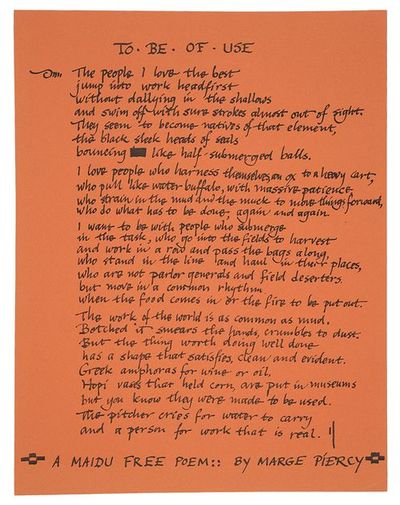 TO · BE · OF · USE
The people I love the best
jump into work headfirst
without dallying in the shallows
and swim off with sure strokes almost out of sight.
They seem to become natives of that element,
the black sleek heads of seals
bouncing like half-submerged balls.
I love people who harness themselves, an ox to a heavy cart,
who pull like water buffalo, with massive patience,
who strain in the mud and the muck to move things forward,
who do what has to be done, again and again.
I want to be with people who submerge
in the task, who go into the fields to harvest
and work in a row and pass the bags along,
who stand in the line and haul in their places,
who are not parlor generals and field deserters
but move in a common rhythm
when the food comes in or the fire to be put out.
The work of the world is as common as mud.
Botched it smears the hands, crumbles to dust.
But the thing worth doing well done
has a shape that satisfies, clean and evident.
Greek amphoras for wine or oil,
Hopi vases that held corn, are put in museums
but you know they were made to be used.
The pitcher cries for water to carry
and a person for work that is real.
A MAIDU FREE POEM :: BY MARGE PIERCY